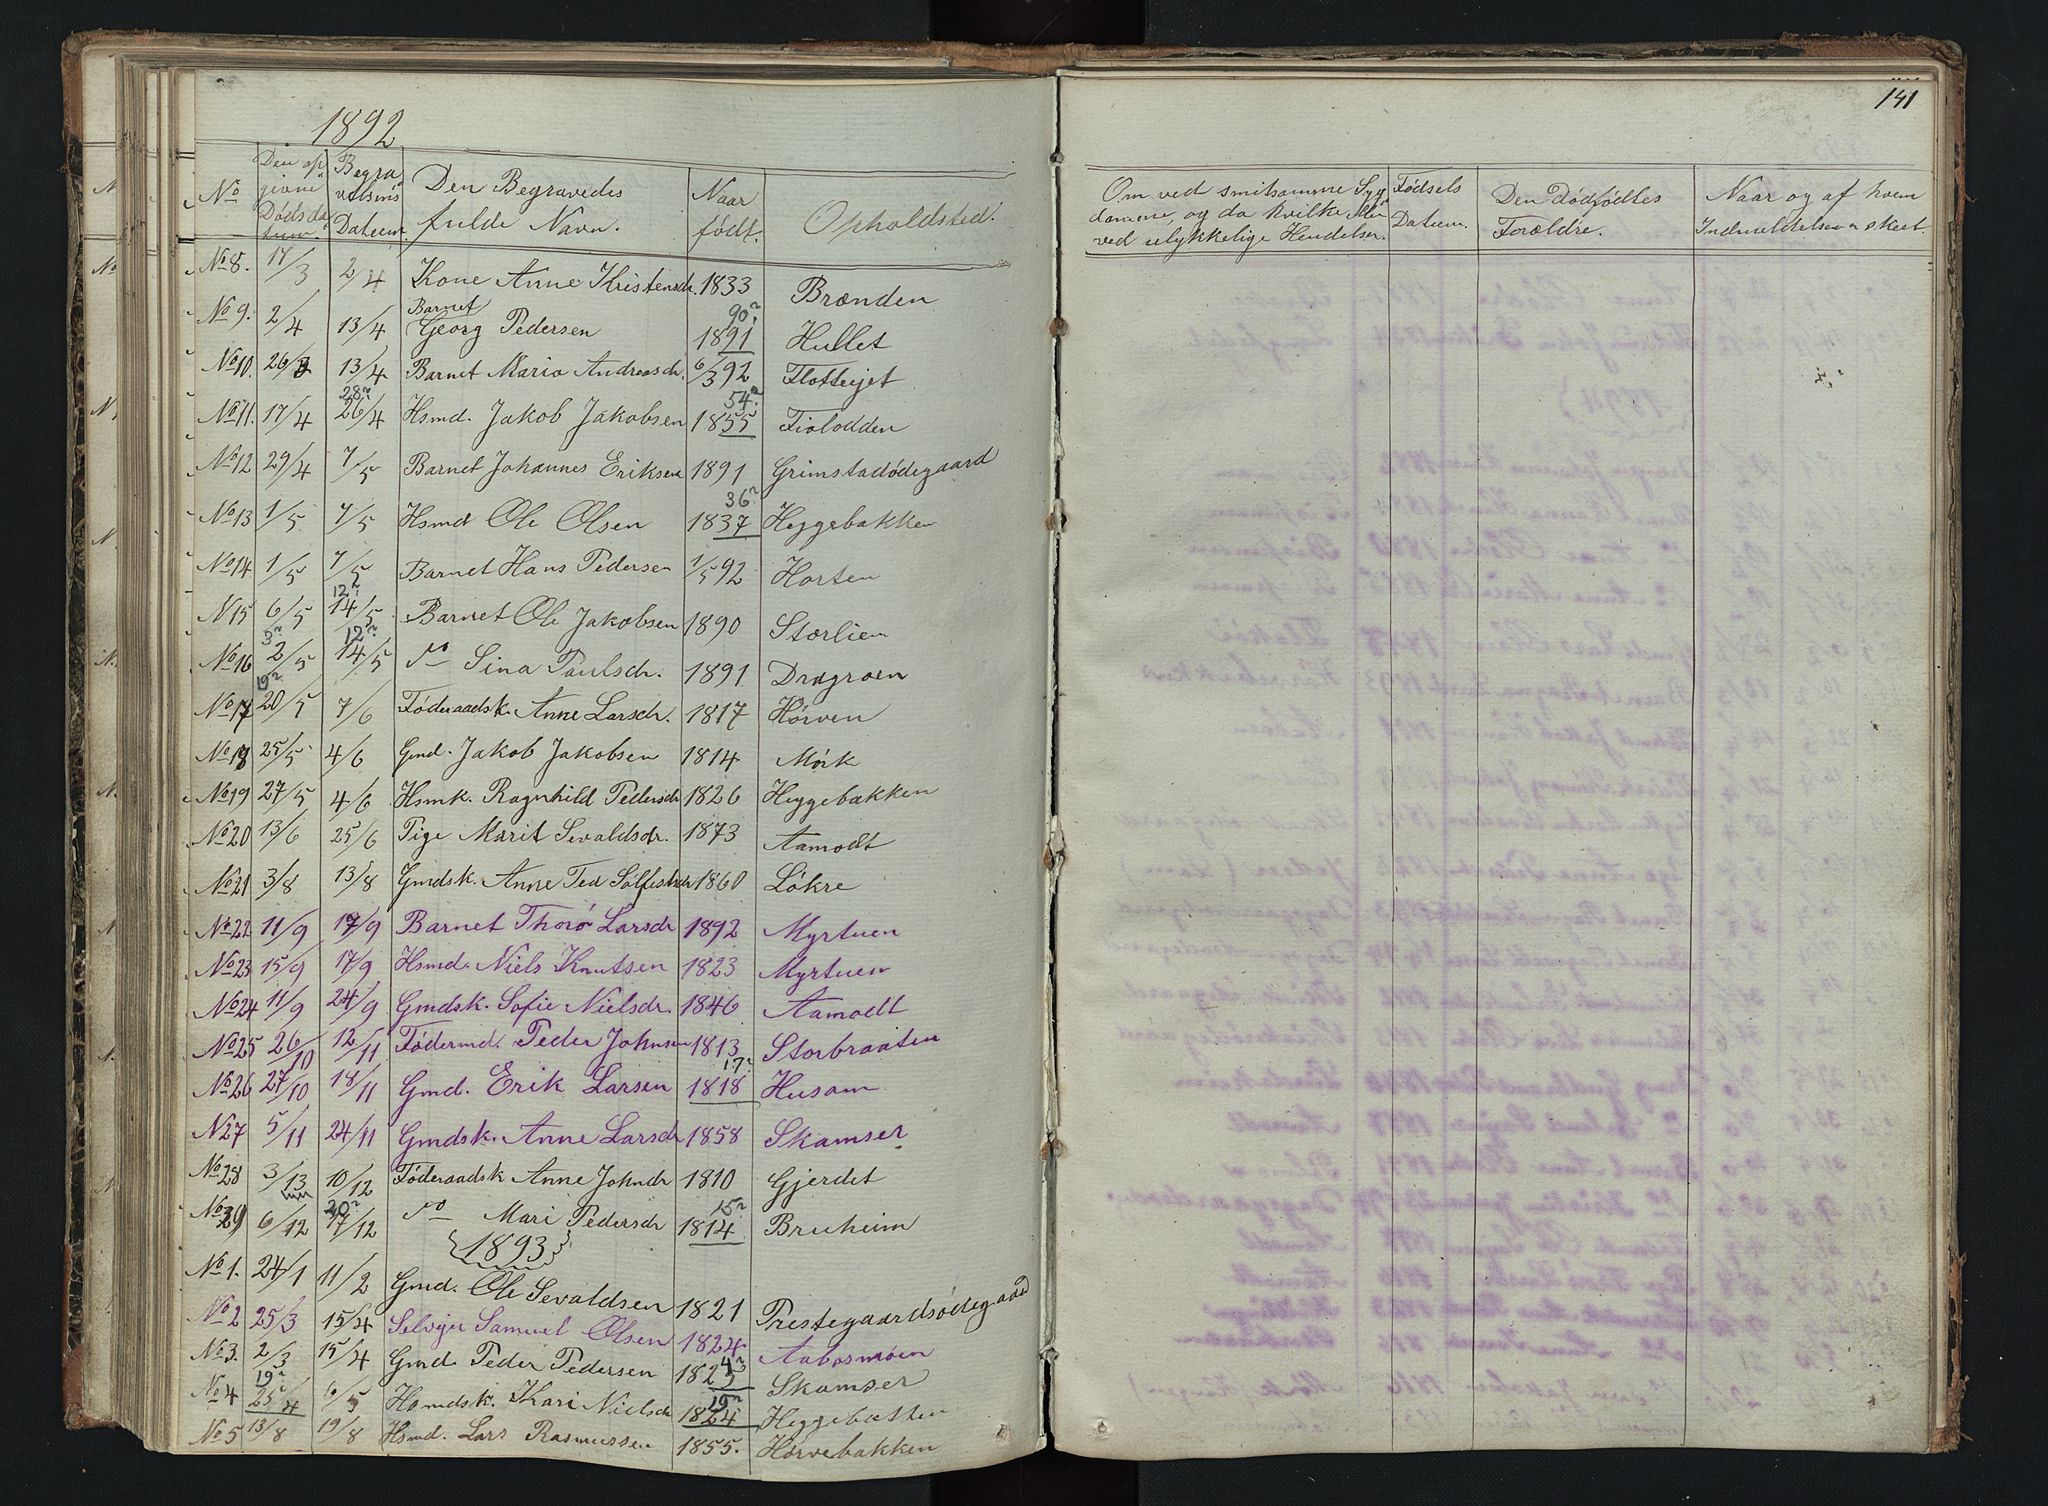 1892
No
Den opgivne Dødsdatum
Begravelsens Datum
Den Begravedes fulde Navn.
Naar født.
Opholdsted.
No 8. 17/3 2/4 Kone Anne Kristensdr. 1833 Brænden
No 9. 2/4 13/4 Barnet Georg Pedersen 1891 90? Hullet
No 10. 26/3 13/4 Barnet Maria Andreasdr. 6/3 92 Flottejet
No 11. 17/4 26/4 28? Hsmd. Jakob Jakobsen 1855 54? Fiolodden
No 12 29/4 7/5 Barnet Johannes Eriksen 1891 Grimstadødegaard
No 13 1/5 7/5 Hsmd Ole Olsen 1837 36? Heggebakken
No 14 1/5 7/5 Barnet Hans Pedersen 1/5 92 Horten
N 15 6/5 14/5 12? Barnet Ole Jakobsen 1890 Storlien
No 16 2/5 3? 14/5 12? do Sina Paulsdr. 1891 Dragroen
No 17 20/5 19? 7/6 Føderaadsk. Anne Larsdr. 1817 Hørven
No 18 25/5 4/6 Gmd. Jakob Jakobsen 1814 Mørk
No 19 27/5 4/6 Hsmk. Ragnhild Pedersdr 1826 Heggebakken
No 20 13/6 25/6 Pige Marit Sevaldsdr. 1873 Aamodt
No 21 3/8 13/8 Gmdsk. Anne Ted Sølfestsdr 1860 Løkre
No 22 11/9 17/9 Barnet Thorø Larsdr 1892 Myrtuen
No 23 15/9 17/9 Hsmd. Niels Knutsen 1823 Myrtuen
No 24 11/9 24/9 Gmdsk. Sofie Nielsdr. 1846 Aamodt
No 25 26/10 12/11 Fødermd. Peder Johnsen 1813 Storbraaten
No 26 27/10 18/11 Gmd. Erik Larsen 1818 17? Husom
N 27 5/11 24/11 Gmdsk. Anne Larsdr 1858 Skamser
No 28 3/13 10/12 Føderaadsk Anne Johndr 1810 Gjerdet
No 29 6/12 17/12 20? do Mari Pedersdr 1814 15? Bruheim
{1893}
No 1. 24/1 11/2 Gmd. Ole Sevaldsen 1821 Prestegaardsødegaard
No 2 25/3 15/4 Selvejer Samuel Olsen 1824 Aabosmoen
No 3. 2/3 15/4 Gmd. Peder Pedersen 1825 4? Skamser
No 4 25/4 19? 6/5 Hsmdsk. Kari Nielsdr 1824 19? Heggebøtten
No 5 13/8 19/8 Hsmd. Lars Rasmussen 1855. Hørvebakken
141
Om ved smitsomme Sygdomme, og da hvilke eller ved ulykkelige Hendelser.
Fødsels Datum.
Den Dødfødtes Forældre.
Naar og af hvem Indmeldelsen er skeet.